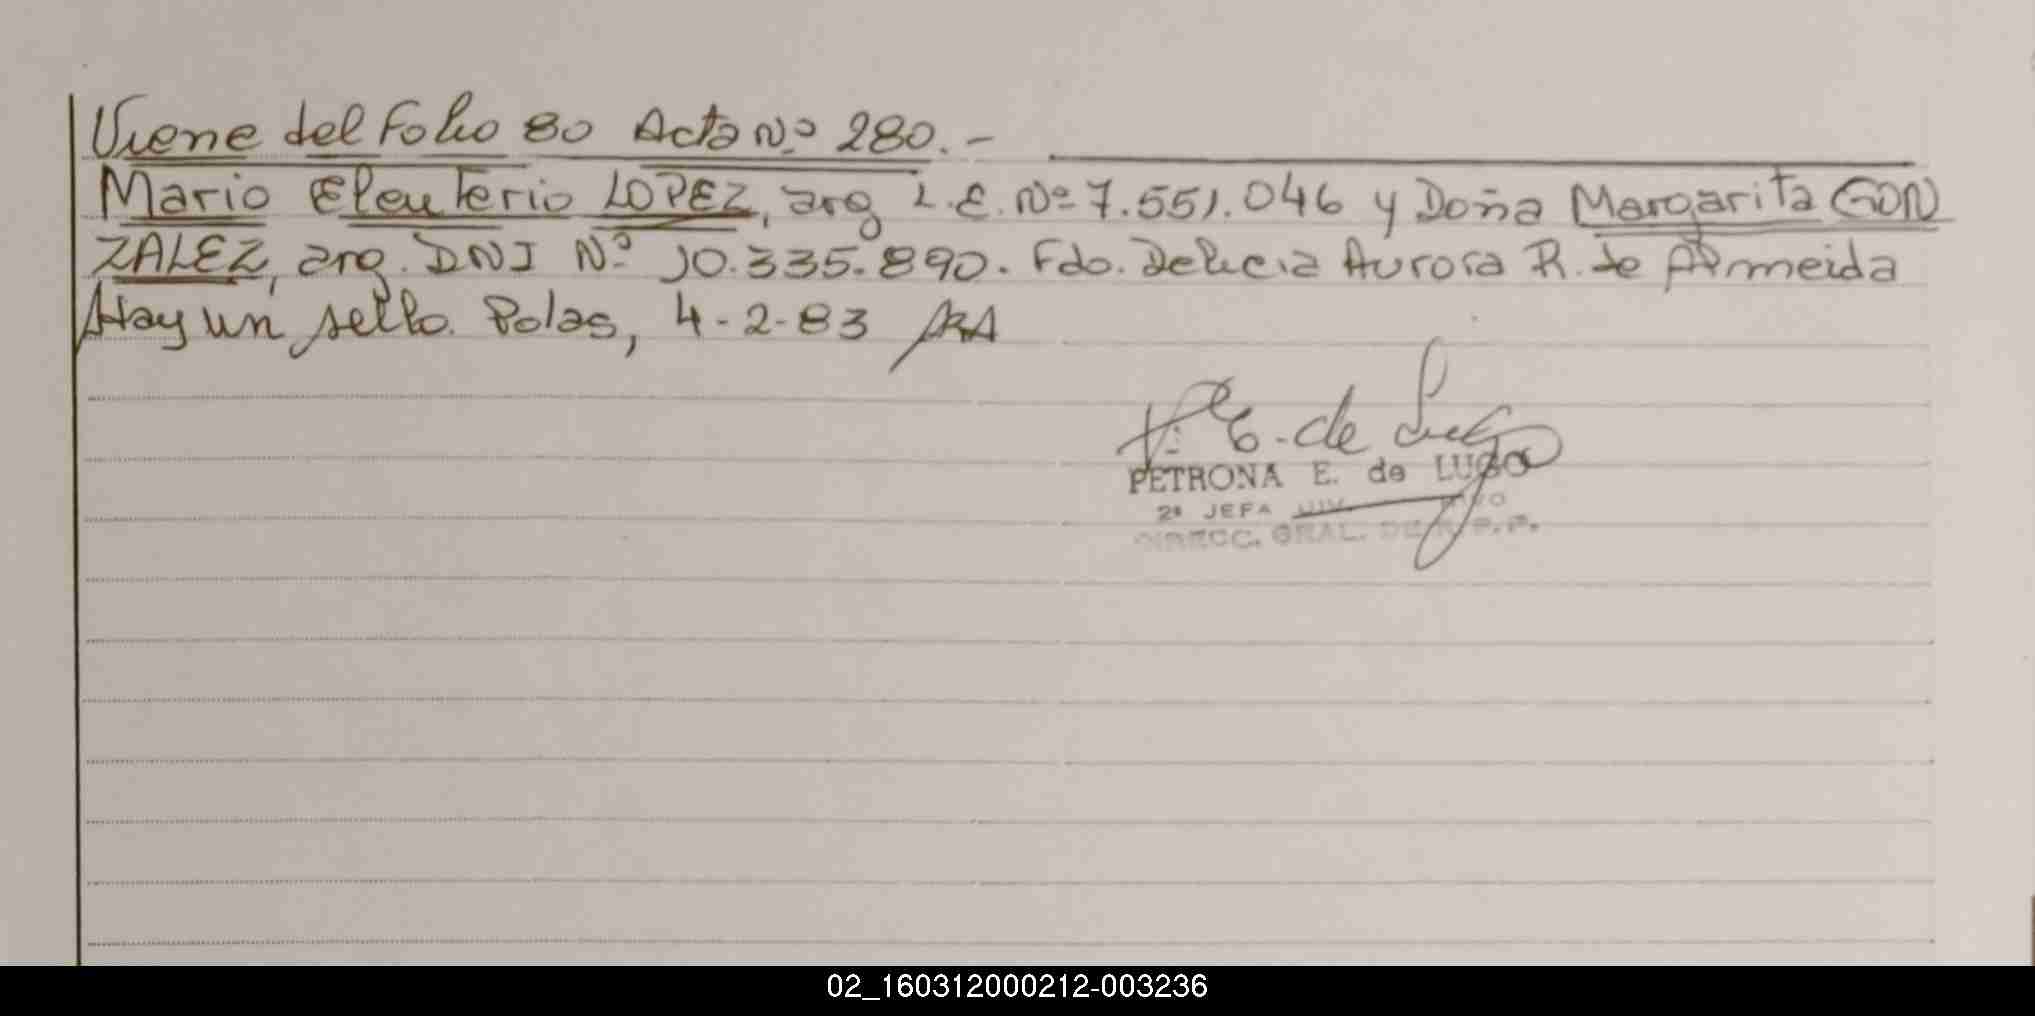 Viene del Folio 80 Acta Nº 280.-
Mario Eleuterio LOPEZ, arg L.E. Nº 7.551.046 y Doña Margarita GON
ZALEZ, arg. DNI Nº 10.335.890. Fdo. Delicia Aurora R. de Almeida
Hay un sello. Pdas, 4-2-83
P. E. de Lugo
PETRONA E. de LUGO
2ª JEFA DIV.
DIRECC. GRAL. DE R. P. P.
02_160312000212-003236